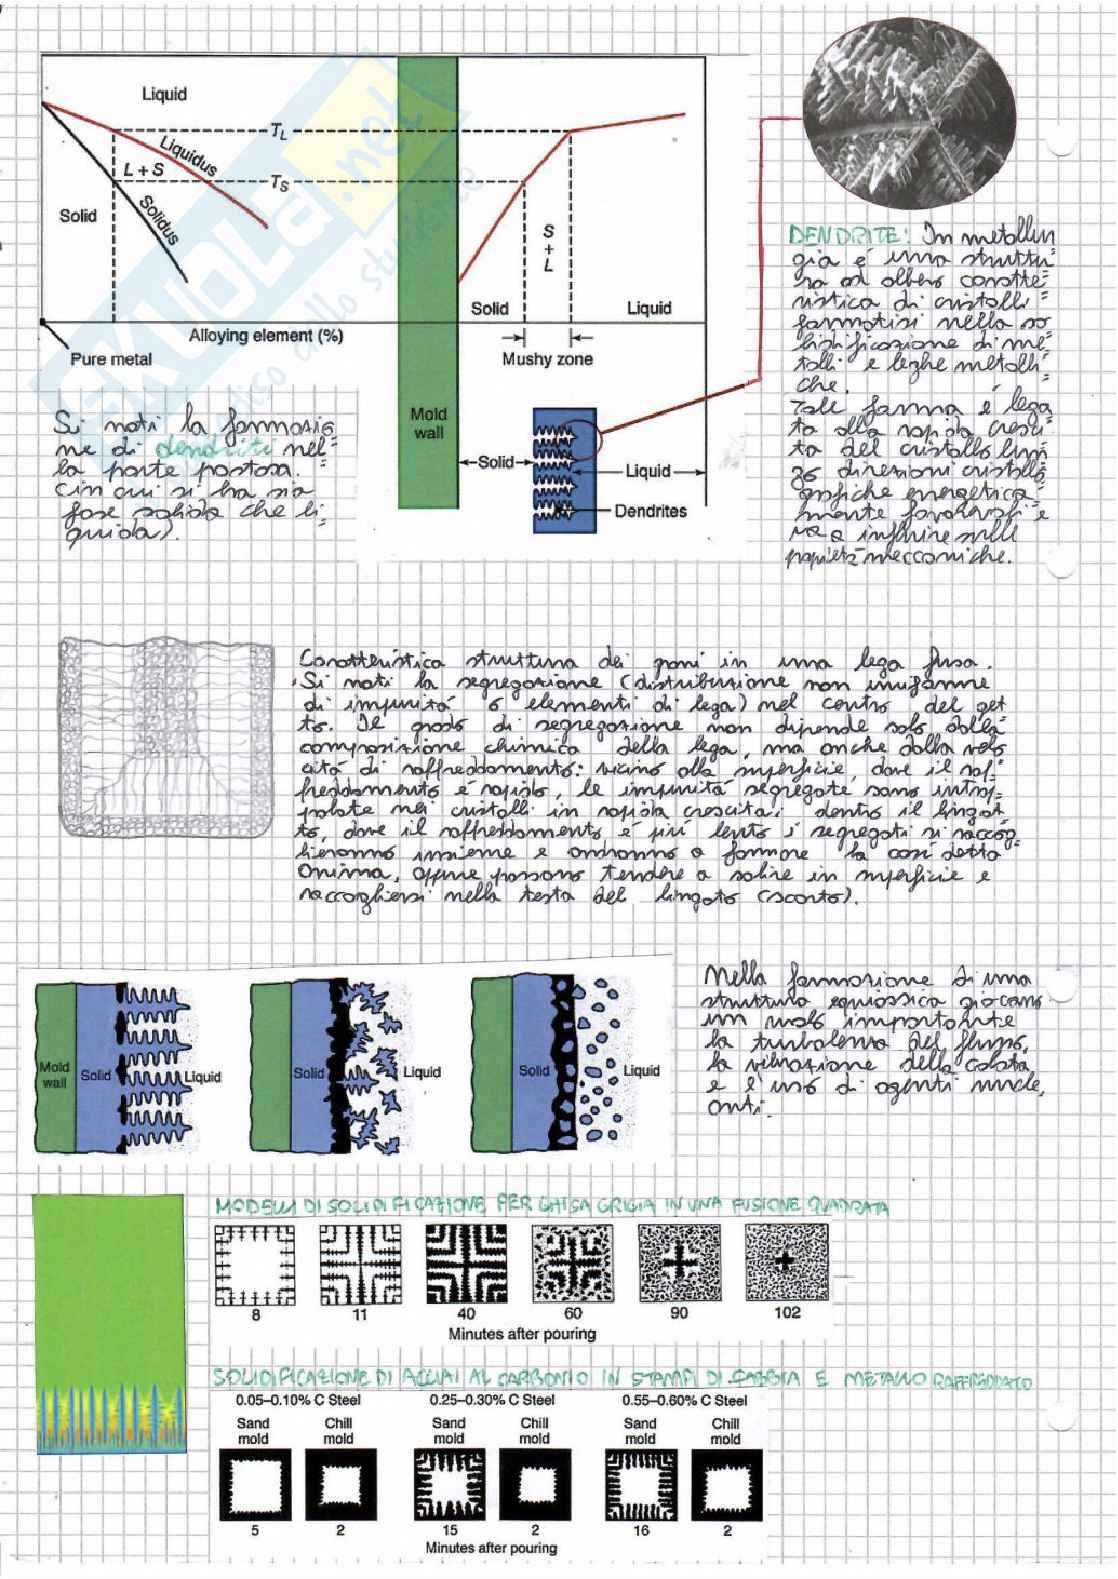 Liquid
T_L
Liquidus
L + S
T_S
Solid
Solidus
S
+
L
Solid
Liquid
Alloying element (%)
Pure metal
Mushy zone
Mold
wall
Solid
Liquid
Dendrites
SKUOLA.net
paradiso dello studente
DENDRITE: In metallur
gia è una struttu=
ra ad albero caratte=
ristica di cristalli
formatisi nella so
lidificazione di me=
talli e leghe metalli
che.
Tale forma è lega
ta alla rapida cresci=
ta del cristallo lun
go direzioni cristallo
grafiche energetica=
mente favorevoli e
va a influire sulle
proprietà meccaniche.
Si noti la formazio
ne di dendriti nel=
la parte pastosa.
(in cui si ha sia
fase solida che li=
quida).
Caratteristica struttura dei grani in una lega fusa.
Si noti la segregazione (distribuzione non uniforme
di impurità o elementi di lega) nel centro del get
to. Il grado di segregazione non dipende solo dalla
composizione chimica della lega, ma anche dalla velo
cità di raffreddamento: vicino alla superficie, dove il raf=
freddamento è rapido, le impurità segregate sono intrap=
polate nei cristalli in rapida crescita; dentro il lingot
to, dove il raffreddamento è più lento i segregati si raccog
lieranno insieme e andranno a formare la così detta
anima, oppure possono tendere a salire in superficie e
raccogliersi nella testa del lingotto (scarto).
Mold
wall
Solid
Liquid
Solid
Liquid
Solid
Liquid
Nella formazione di una
struttura equiassica giocano
un ruolo importante
la turbolenza del flusso,
la vibrazione della colata
e l'uso di agenti nucle
anti.
MODELLI DI SOLIDIFICAZIONE PER GHISA GRIGIA IN UNA FUSIONE QUADRATA
8 11 40 60 90 102
Minutes after pouring
SOLIDIFICAZIONE DI ACCIAI AL CARBONIO IN STAMPI DI SABBIA E METALLO RAFFREDDATO
0.05–0.10% C Steel 0.25–0.30% C Steel 0.55–0.60% C Steel
Sand Chill Sand Chill Sand Chill
mold mold mold mold mold mold
5 2 15 2 16 2
Minutes after pouring